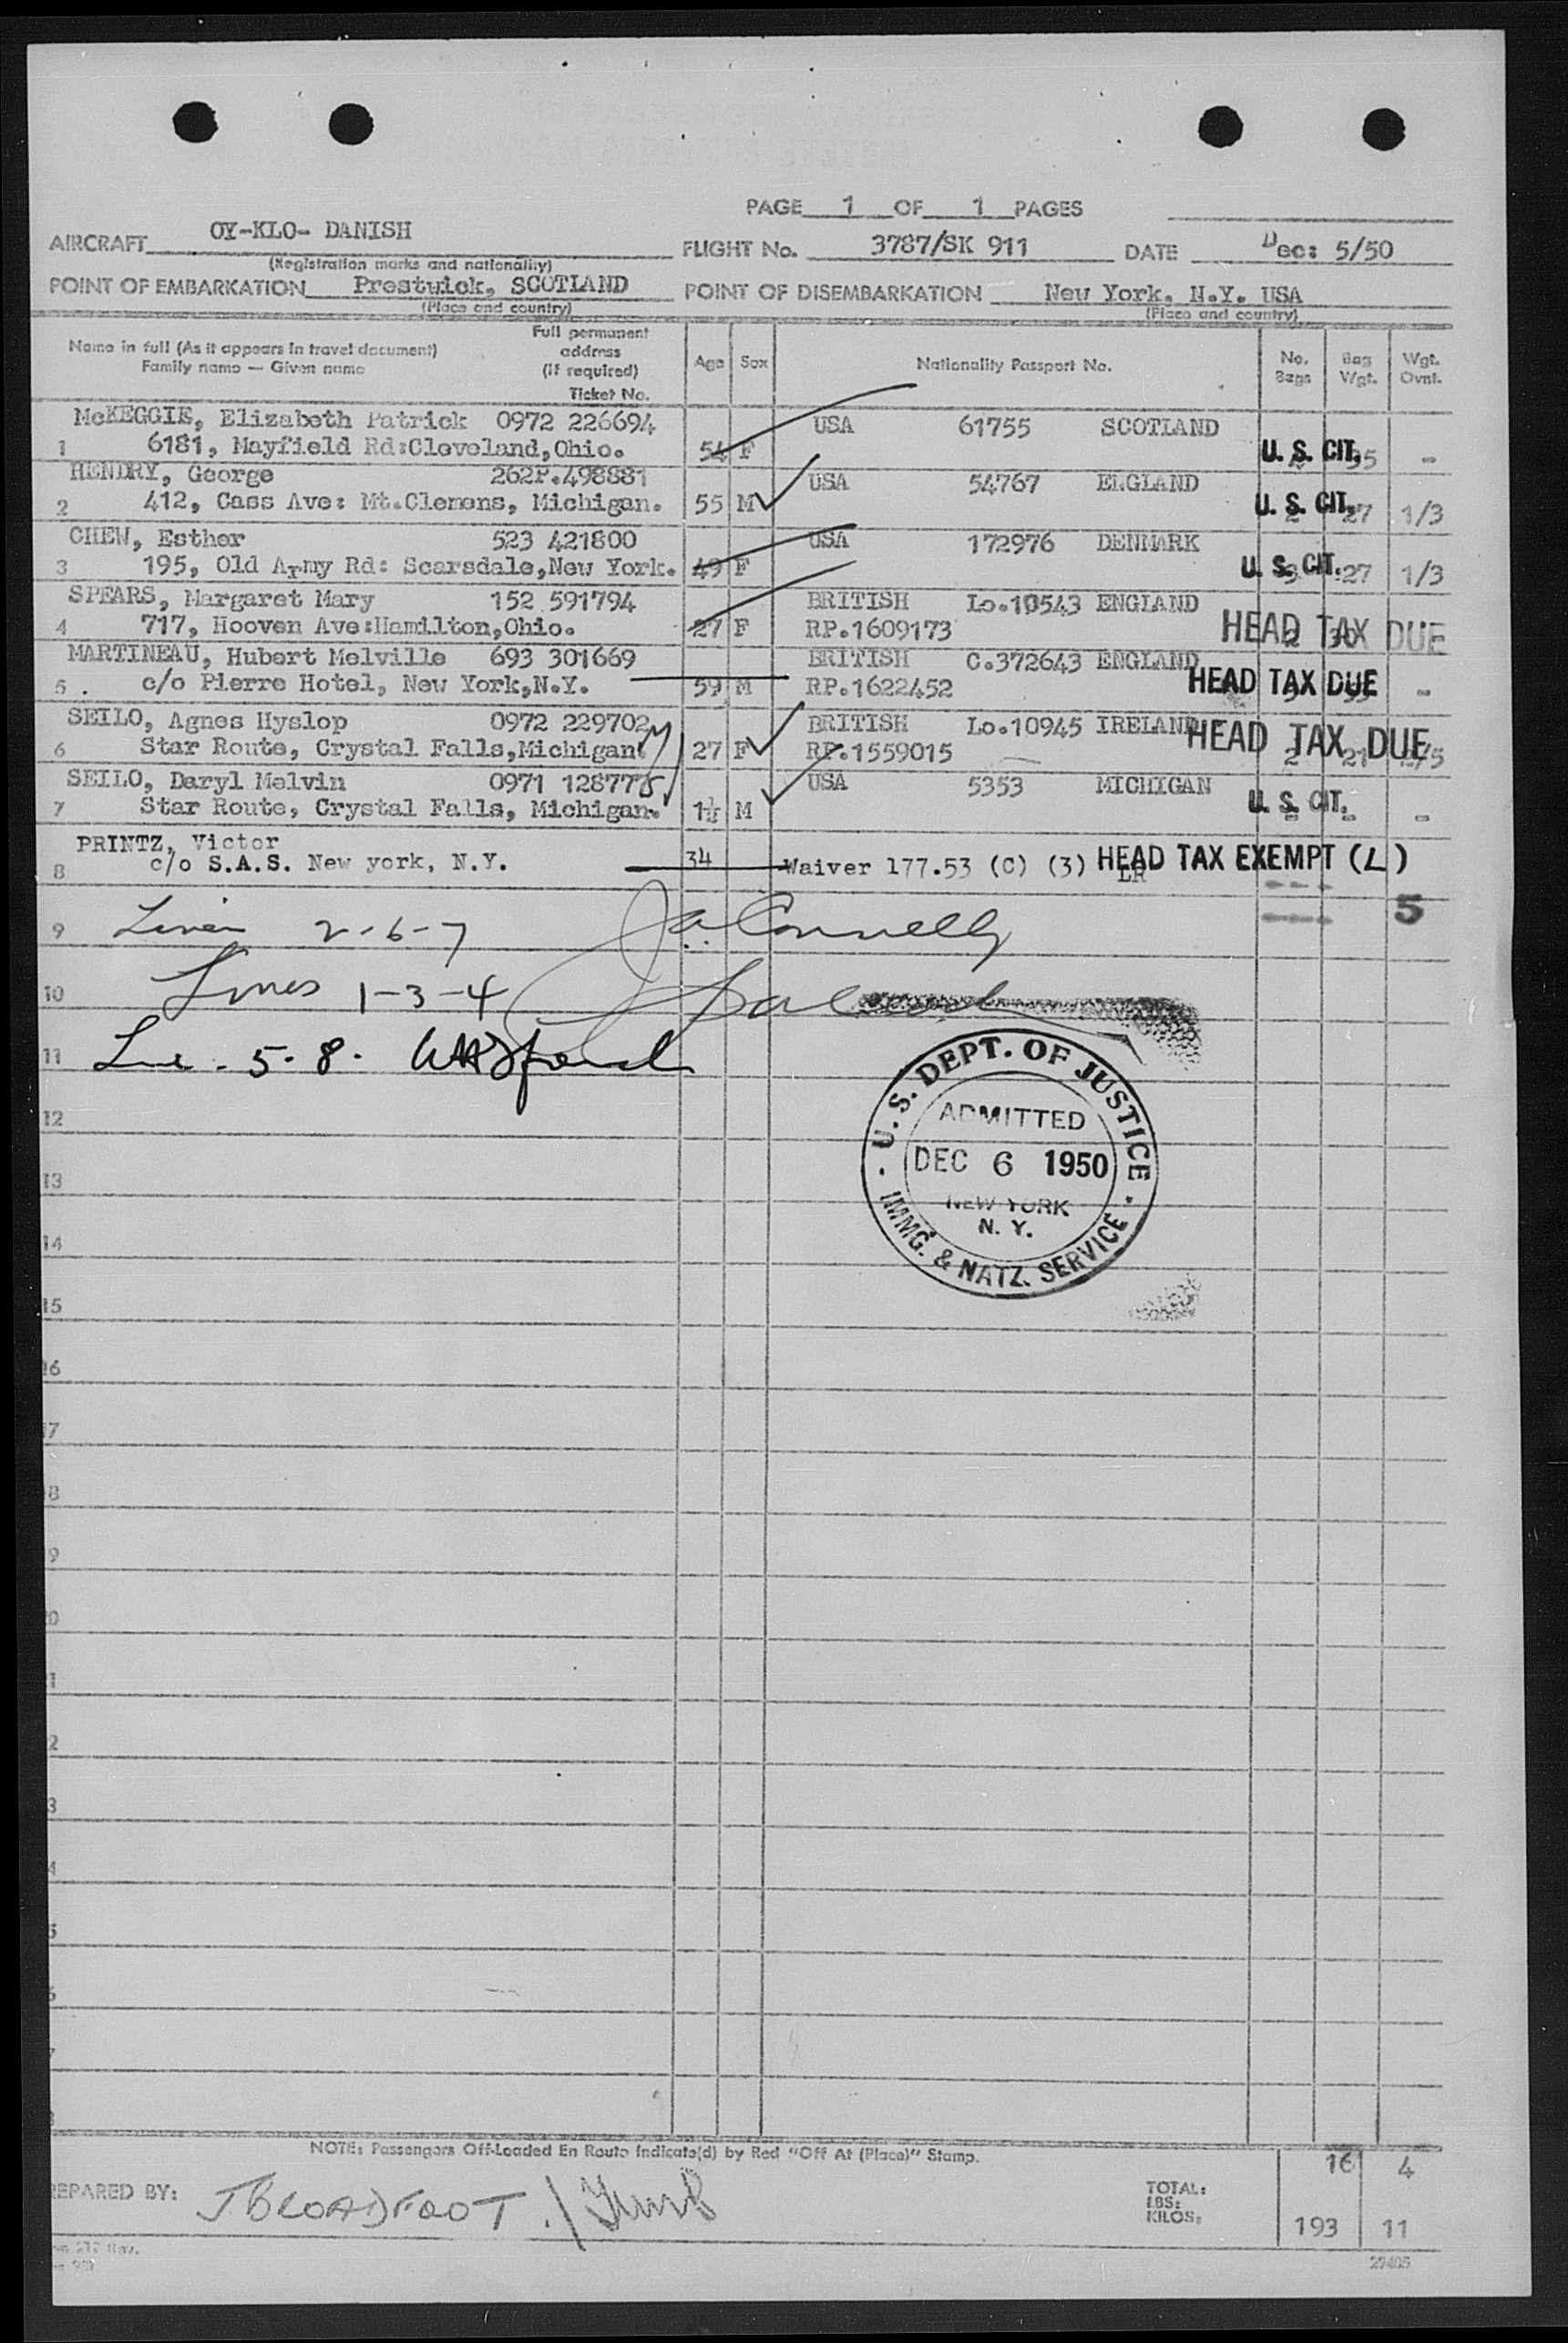 PAGE 1 OF 1 PAGES
AIRCRAFT OY-KLO- DANISH FLIGHT No. 3787/SK 911 DATE Dec: 5/50
(Registration marks and nationality)
POINT OF EMBARKATION Prestwick, SCOTLAND POINT OF DISEMBARKATION New York, N.Y. USA
(Place and country) (Place and country)
Name in full (As it appears in travel document) Family name — Given name Full permanent address (if required) Ticket No. Age Sex Nationality Passport No. No. Bags Bag Wgt. Wgt. Ovnt.
McKEGGIE, Elizabeth Patrick 0972 226694 USA 61755 SCOTLAND
1 6181, Mayfield Rd:Cleveland,Ohio. 54 F U. S. CIT. -
HENDRY, George 262P.498881 USA 54767 ENGLAND
2 412, Cass Ave: Mt.Clemens, Michigan. 55 M U. S. CIT. 27 1/3
CHEW, Esther 523 421800 USA 172976 DENMARK
3 195, Old Army Rd: Scarsdale,New York. 49 F U. S. CIT. 27 1/3
SPEARS, Margaret Mary 152 591794 BRITISH Lo.10543 ENGLAND
4 717, Hooven Ave:Hamilton,Ohio. 27 F RP.1609173 HEAD TAX DUE
MARTINEAU, Hubert Melville 693 301669 BRITISH C.372643 ENGLAND
5 . c/o Pierre Hotel, New York,N.Y. 59 M RP.1622452 HEAD TAX DUE -
SEILO, Agnes Hyslop 0972 229702 BRITISH Lo.10945 IRELAND
6 Star Route, Crystal Falls,Michigan. 27 F RP.1559015 HEAD TAX DUE 2 21
SEILO, Daryl Melvin 0971 128777 USA 5353 MICHIGAN
7 Star Route, Crystal Falls, Michigan. 1½ M U. S. CIT. - - -
PRINTZ, Victor
8 c/o S.A.S. New york, N.Y. 34 Waiver 177.53 (C) (3) HEAD TAX EXEMPT (L)
5
9 2-6-7
10 Lines 1-3-4
11 5-8.
U.S. DEPT. OF JUSTICE
ADMITTED
DEC 6 1950
NEW YORK
N. Y.
IMMG. & NATZ. SERVICE
12
13
14
15
16
17
NOTE: Passengers Off-Loaded En Route Indicate(d) by Red "Off At (Place)" Stamp.
16 4
EPARED BY: J BROADFOOT. TOTAL:
LBS:
KILOS: 193 11
27405